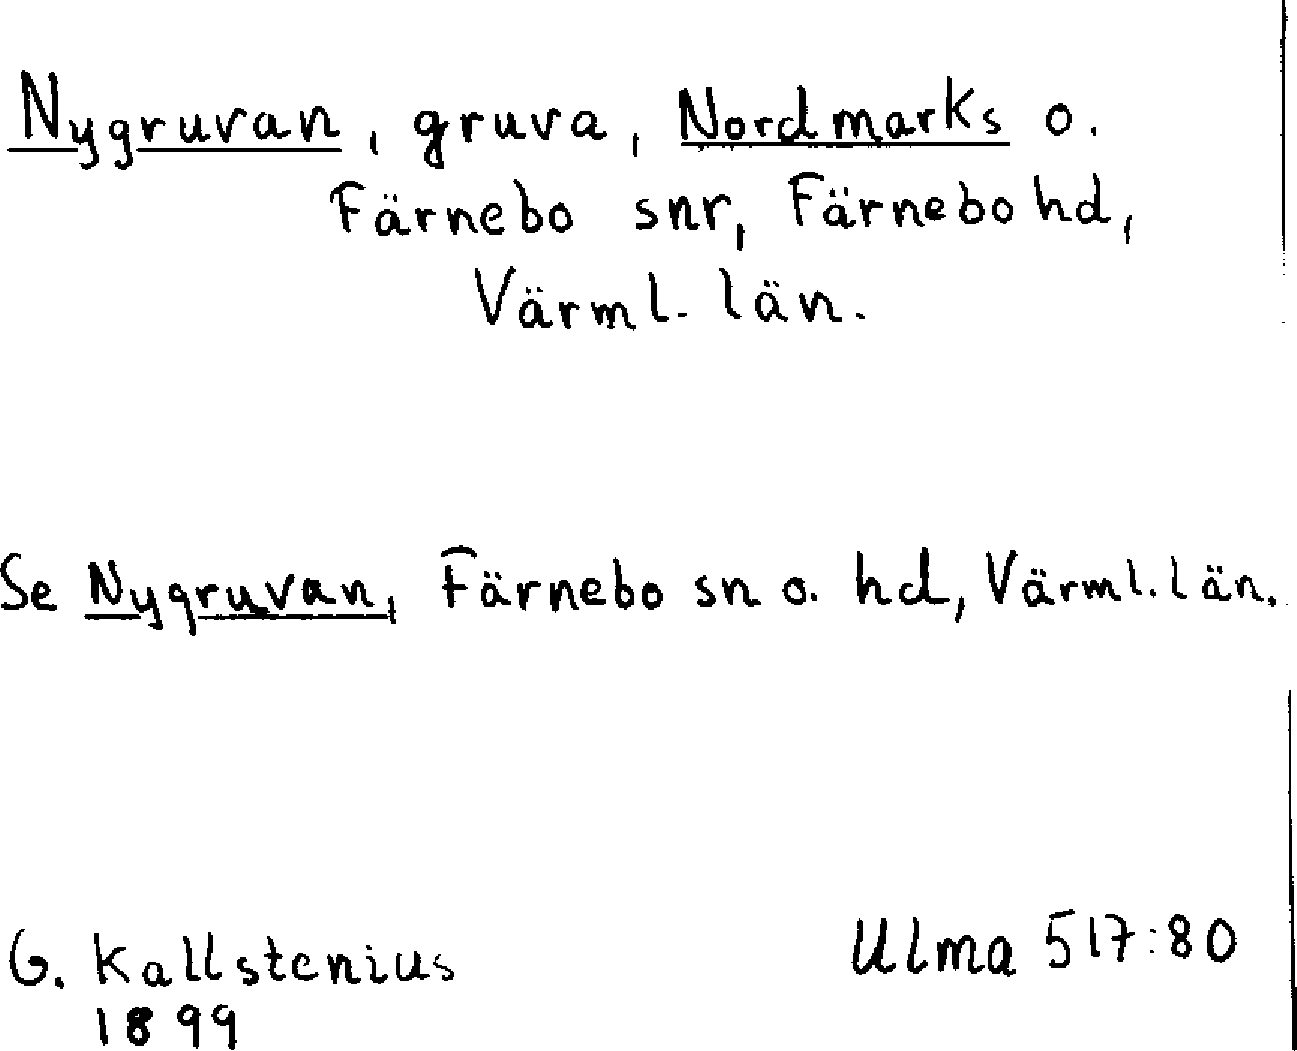 Nygruvan, gruva, Nordmarks o.
Färnebo snr, Färnebo hd,
Värml. län.
Se Nygruvan, Färnebo sn o. hd, Värml. län.
G. Kallstenius Ulma 517:80
1899